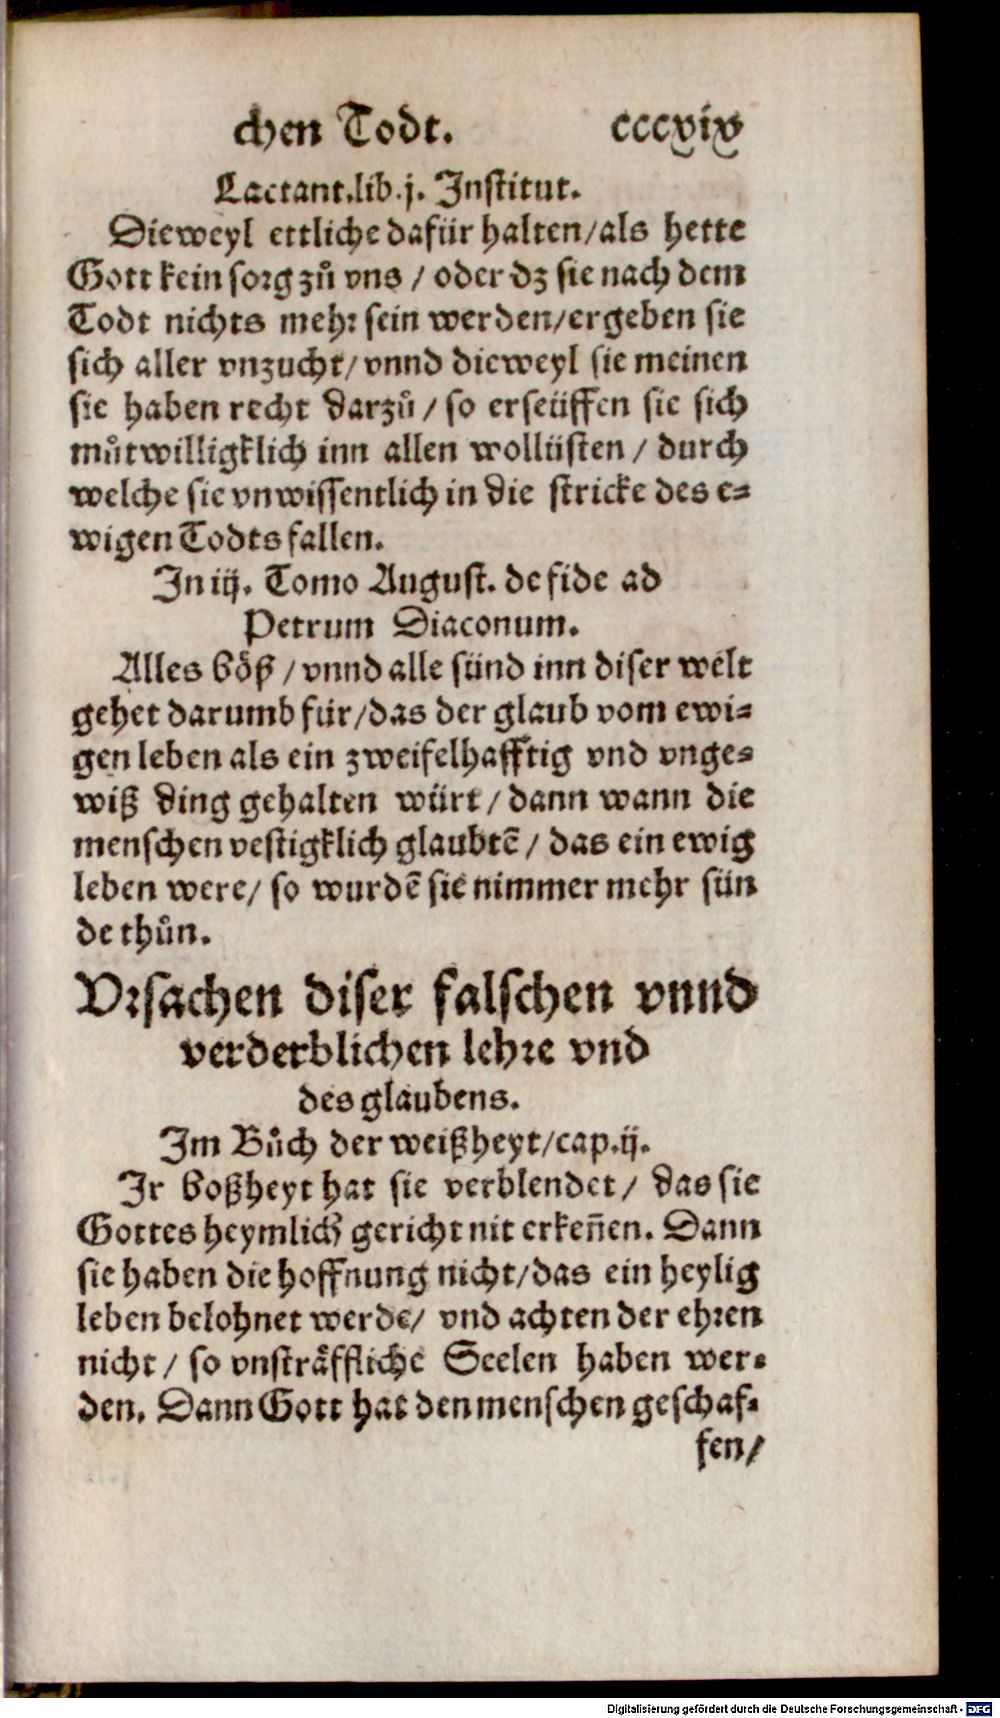 chen Todt. cccxix
Lactant.lib.j. Institut.
Dieweyl ettliche dafür halten/als hette
Gott kein sorg zů vns / oder dz sie nach dem
Todt nichts mehr sein werden/ergeben sie
sich aller vnzucht/ vnnd dieweyl sie meinen
sie haben recht darzů / so erseüffen sie sich
můtwilligklich inn allen wollüsten / durch
welche sie vnwissentlich in die stricke des e-
wigen Todts fallen.
In iij. Tomo August. de fide ad
Petrum Diaconum.
Alles böß / vnnd alle sünd inn diser welt
gehet darumb für/das der glaub vom ewi-
gen leben als ein zweifelhafftig vnd vnge-
wiß ding gehalten würt / dann wann die
menschen vestigklich glaubtē / das ein ewig
leben were/ so wurdē sie nimmer mehr sün
de thůn.
Vrsachen diser falschen vnnd
verderblichen lehre vnd
des glaubens.
Im Bůch der weißheyt/cap.ij.
Ir boßheyt hat sie verblendet / das sie
Gottes heymlich gericht nit erkeñen. Dann
sie haben die hoffnung nicht/das ein heylig
leben belohnet werde/ vnd achten der ehren
nicht / so vnsträffliche Seelen haben wer-
den. Dann Gott hat den menschen geschaf-
fen/
Digitalisierung gefördert durch die Deutsche Forschungsgemeinschaft - DFG